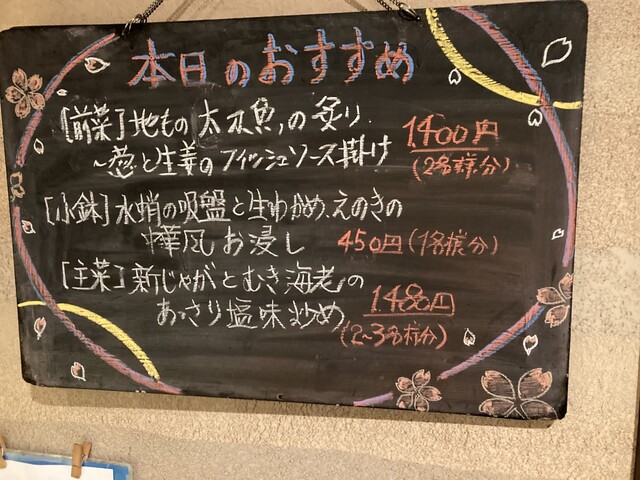 本日のおすすめ
[前菜]地もの太刀魚の炙り
~葱と生姜のフィッシュソース掛け
1400円
(2名様分)
[小鉢]水蛸の吸盤と生わかめ、えのきの
中華風お浸し
450円(1名様分)
[主菜]新じゃがとむき海老の
あっさり塩味炒め
1480円
(2~3名様分)